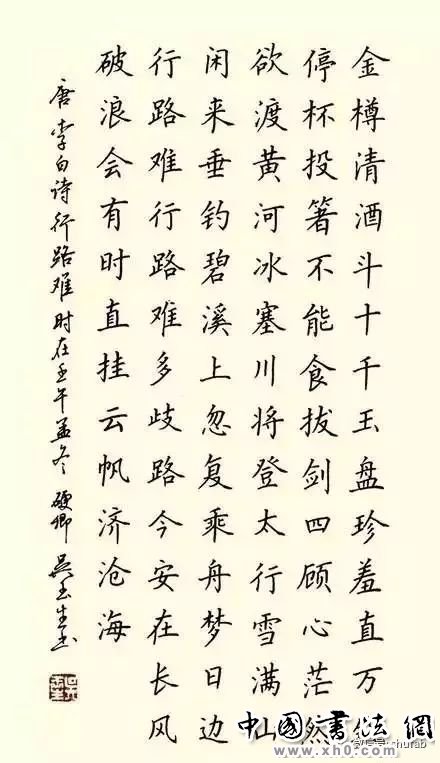 金樽清酒斗十千玉盘珍羞直万钱
停杯投箸不能食拔剑四顾心茫然
欲渡黄河冰塞川将登太行雪满山
闲来垂钓碧溪上忽复乘舟梦日边
行路难行路难多歧路今安在长风
破浪会有时直挂云帆济沧海
唐李白诗行路难时在壬午孟冬硬卿吴玉生书
中國書法網
www.xh0.com